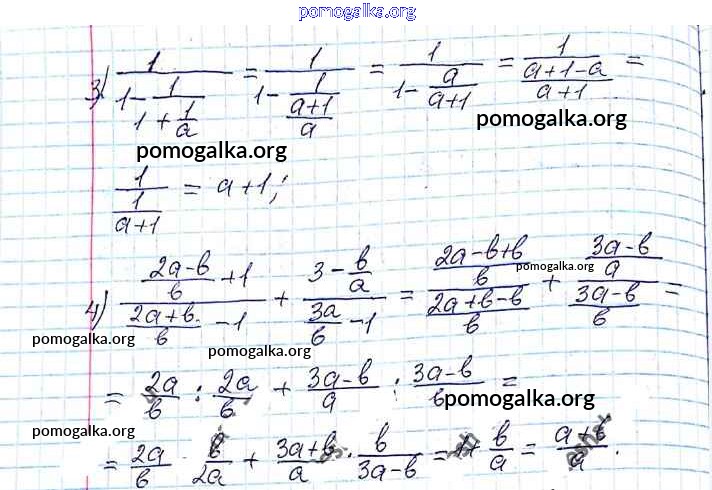 pomogalka.org
3) 1/(1 - 1/(1 + 1/a)) = 1/(1 - 1/((a+1)/a)) = 1/(1 - a/(a+1)) = 1/((a+1-a)/(a+1)) =
pomogalka.org
pomogalka.org
1/(1/(a+1)) = a+1;
4) ((2a-в)/в + 1)/((2a+в)/в - 1) + (3 - в/a)/(3a/в - 1) = ((2a-в+в)/в)/((2a+в-в)/в) + ((3a-в)/a)/((3a-в)/в) =
pomogalka.org
pomogalka.org
pomogalka.org
pomogalka.org
= 2a/в : 2a/в + (3a-в)/a : (3a-в)/в =
pomogalka.org
pomogalka.org
= 2a/в · в/2a + (3a+в)/a · в/(3a-в) = 1+ в/a = (a+в)/a.